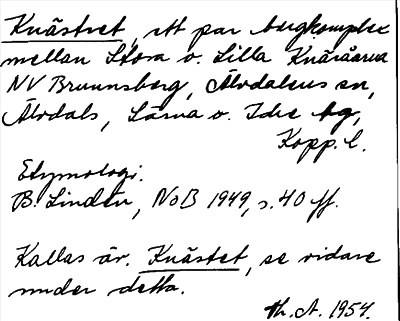 Knästret, ett par bergkomplex
mellan Stora o. Lilla Knäråarna
NV Brunnsberg, Älvdalens sn,
Älvdals, Särna o. Idre tg,
Kopp. l.
Etymologi.
B. Lindén, NoB 1949, s. 40 ff.
Kallas är. Knästet, se vidare
under detta.
th. A. 1954.